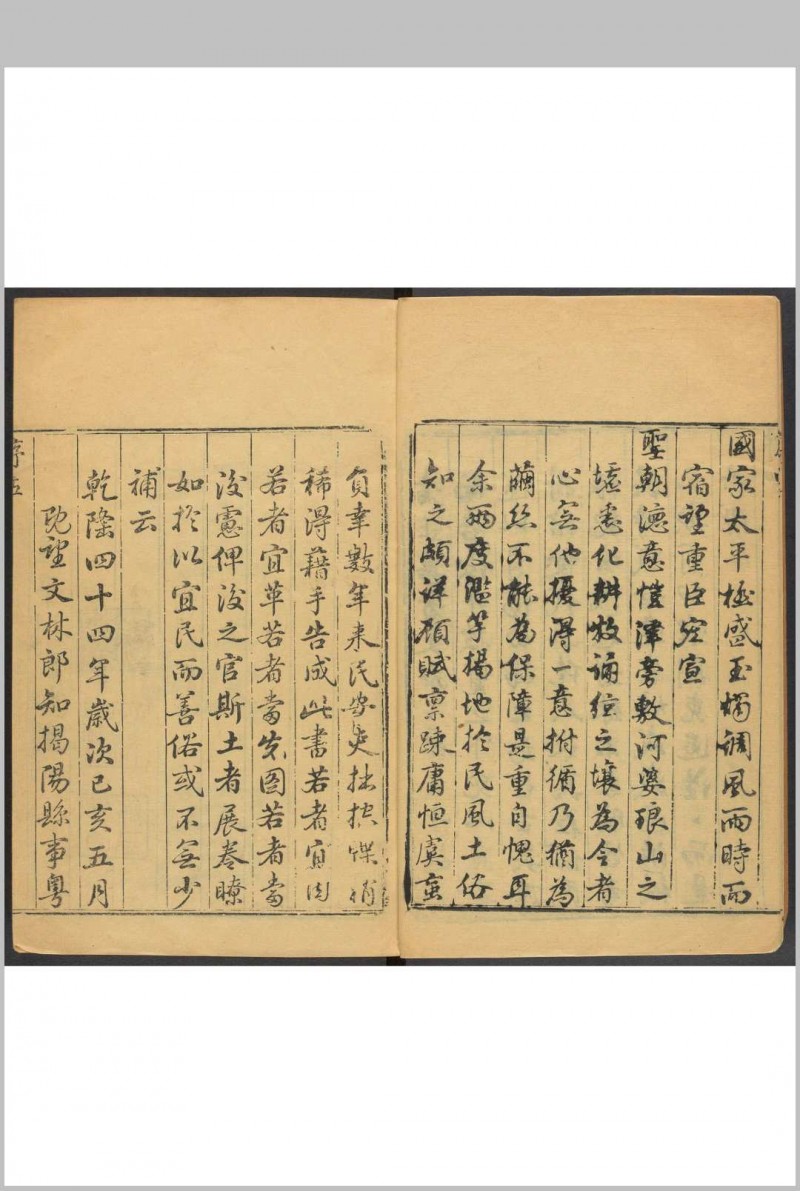 國家太平極盛玉燭調風雨時而
宿望重臣宏宣
聖朝德意愷澤旁敷河婆琅山之
墟悉化耕牧誦絃之壤為令者
心無他擾得一意拊循乃猶為
繭絲不能為保障是重自愧耳
余兩度濫竽揭地於民風土俗
知之頗詳顧賦稟踈庸恒虞蚉
負幸數年来民安吏拙摚
稀淂藉手告成此書若者宜因
若者宜革若者當先圖若者當
後憲俾後之官斯土者展卷瞭
如於以宜民而善俗或不無少
補云
乾隆四十四年歲次己亥五月
既望文林郎知揭陽縣事粵
序五